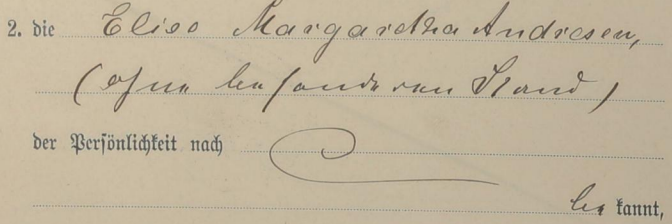 2. die Elise Margaretha Andresen,
(ohne besonderen Stand)
der Persönlichkeit nach
be kannt,